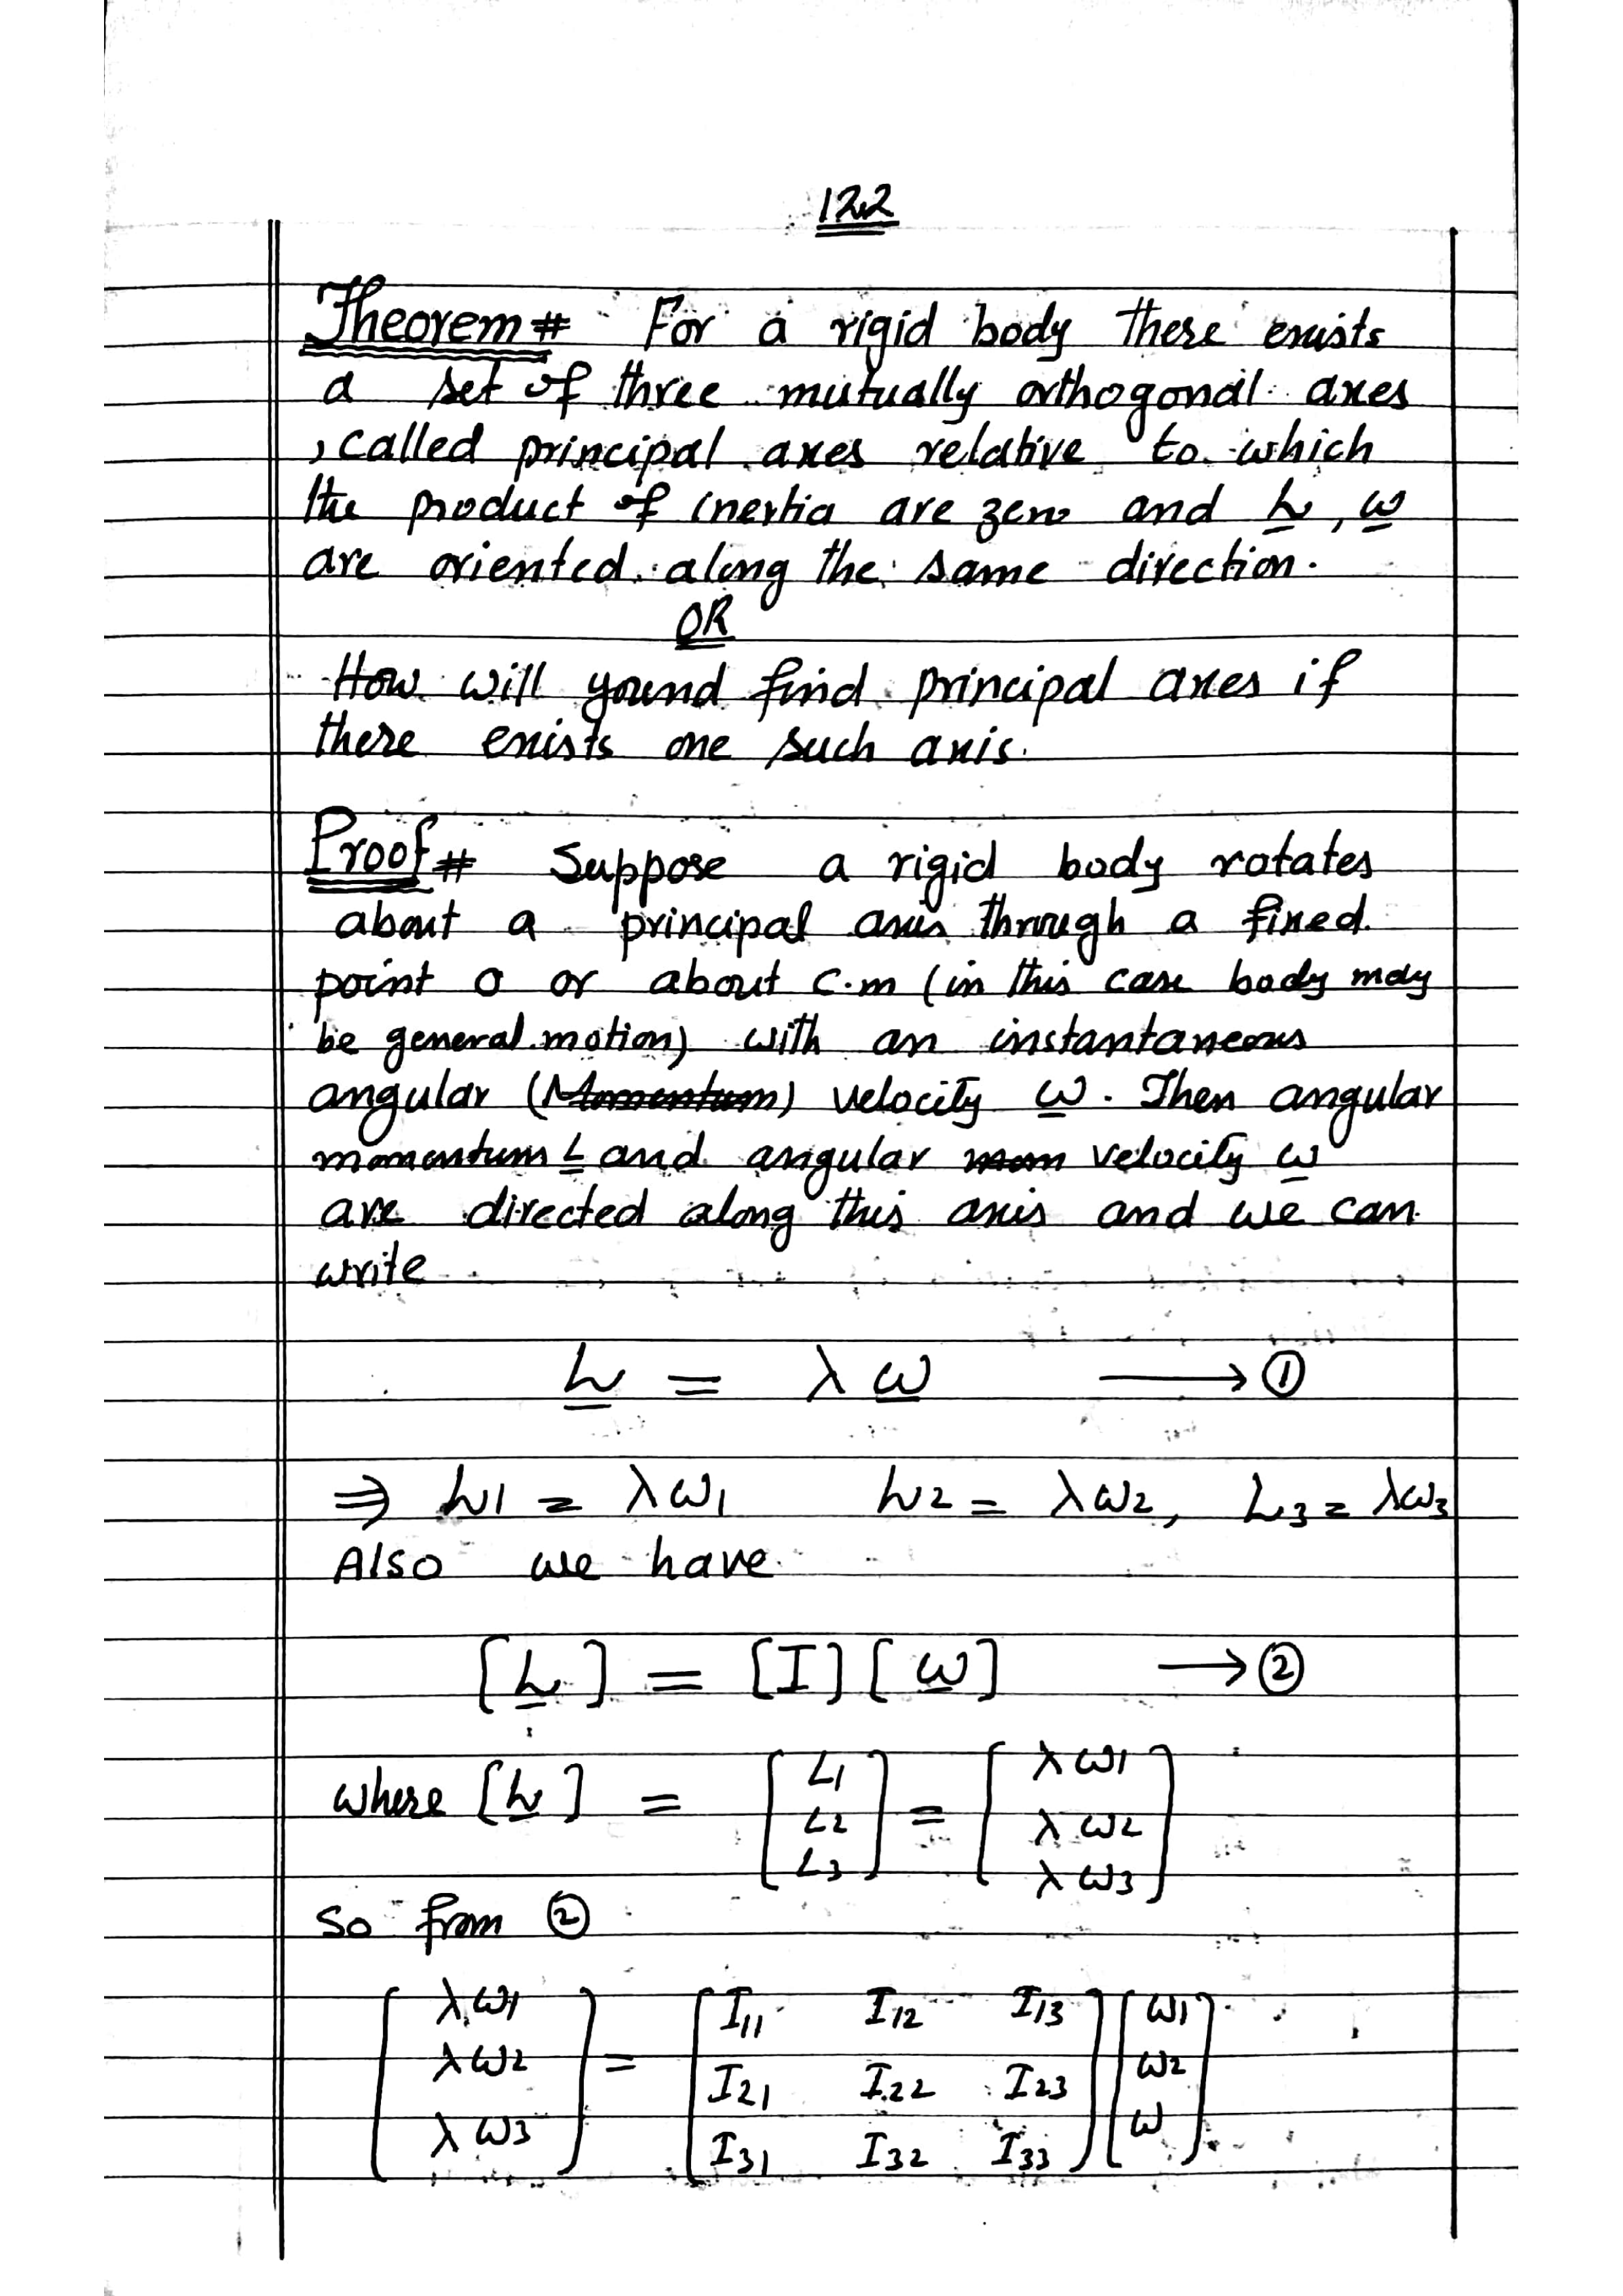 122
Theorem# For a rigid body there exists
a set of three mutually orthogonal axes
, called principal axes relative to which
the product of inertia are zero and L, ω
are oriented along the same direction.
OR
How will yound find principal axes if
there exists one such axis.
Proof# Suppose a rigid body rotates
about a principal axis through a fixed
point o or about c.m (in this case body may
be general motion) with an instantaneous
angular (Momentum) velocity ω. Then angular
momentum L and angular mom velocity ω
are directed along this axis and we can
write
L = λ ω → ①
⇒ L1 = λω1 L2 = λω2, L3 = λω3
Also we have
[L] = [I][ω] → ②
where [L] = [L1 L2 L3] = [λω1 λω2 λω3]
so from ②
[λω1 = [I11 I12 I13] [ω1
λω2 I21 I22 I23 ω2
λω3] I31 I32 I33] ω]